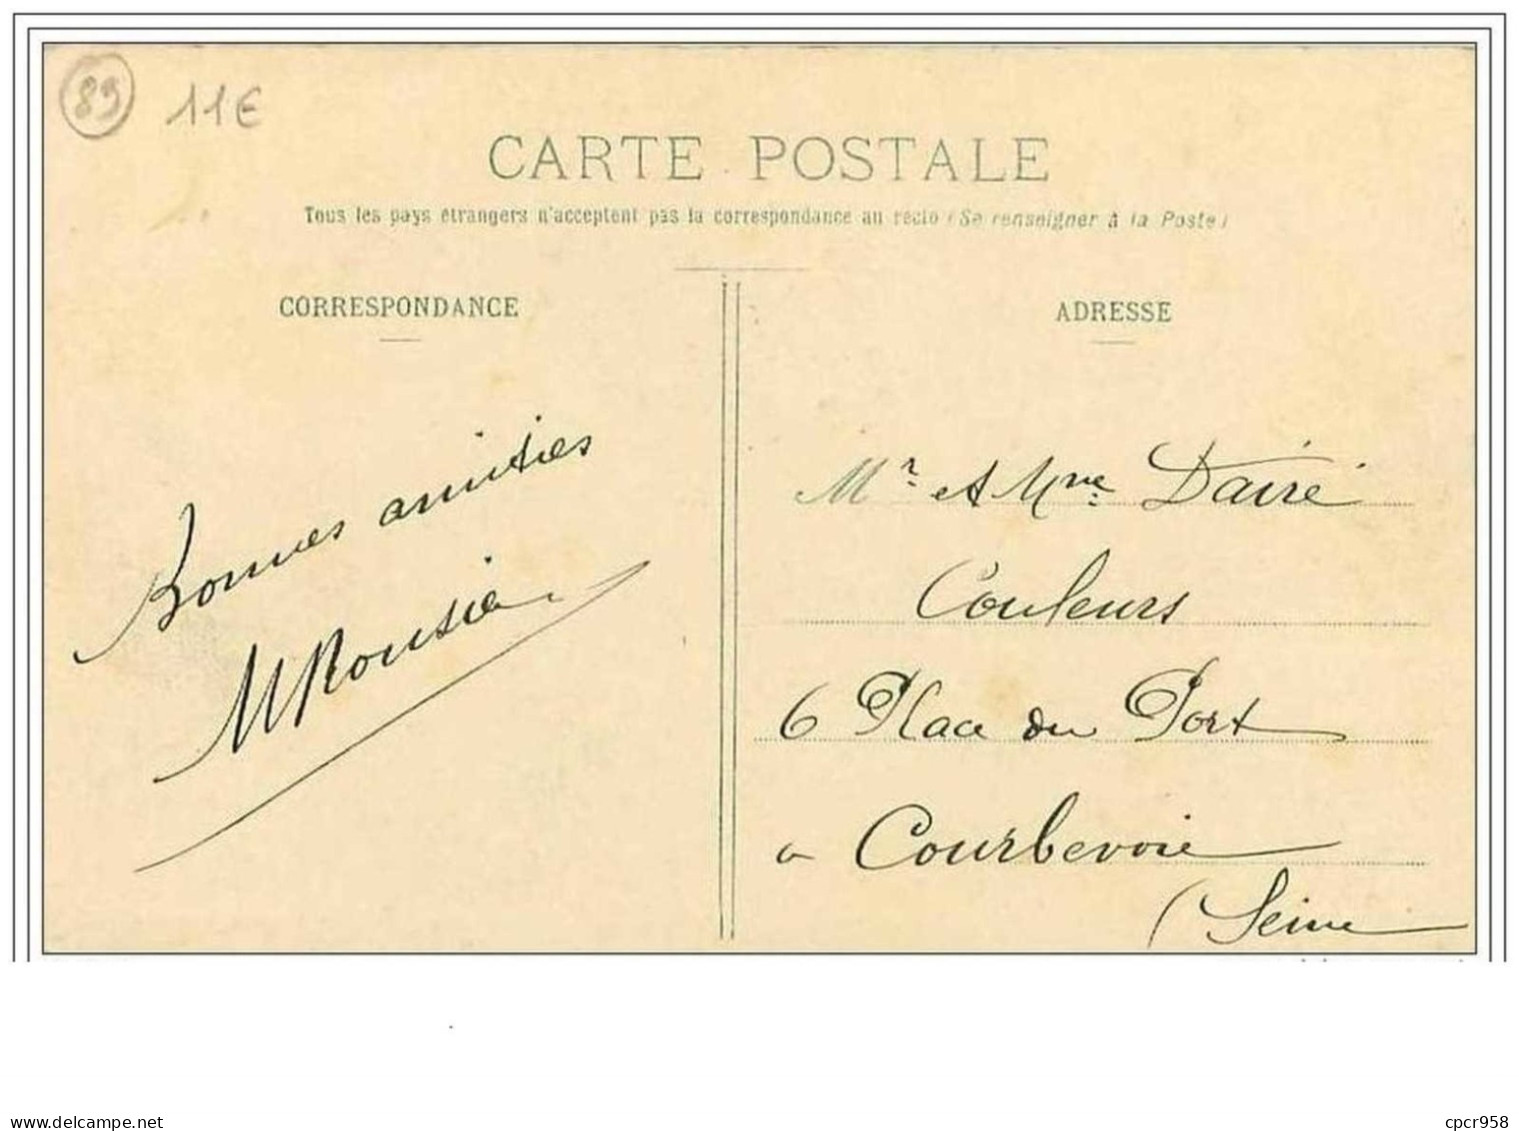 89 11€
CARTE POSTALE
Tous les pays étrangers n'acceptent pas la correspondance au recto (Se renseigner à la Poste)
CORRESPONDANCE
ADRESSE
Bonnes amitiés
Mr et Mme Dairé
Couleurs
6 Place du Port
a Courbevoie
(Seine
www.delcampe.net
cpcr958